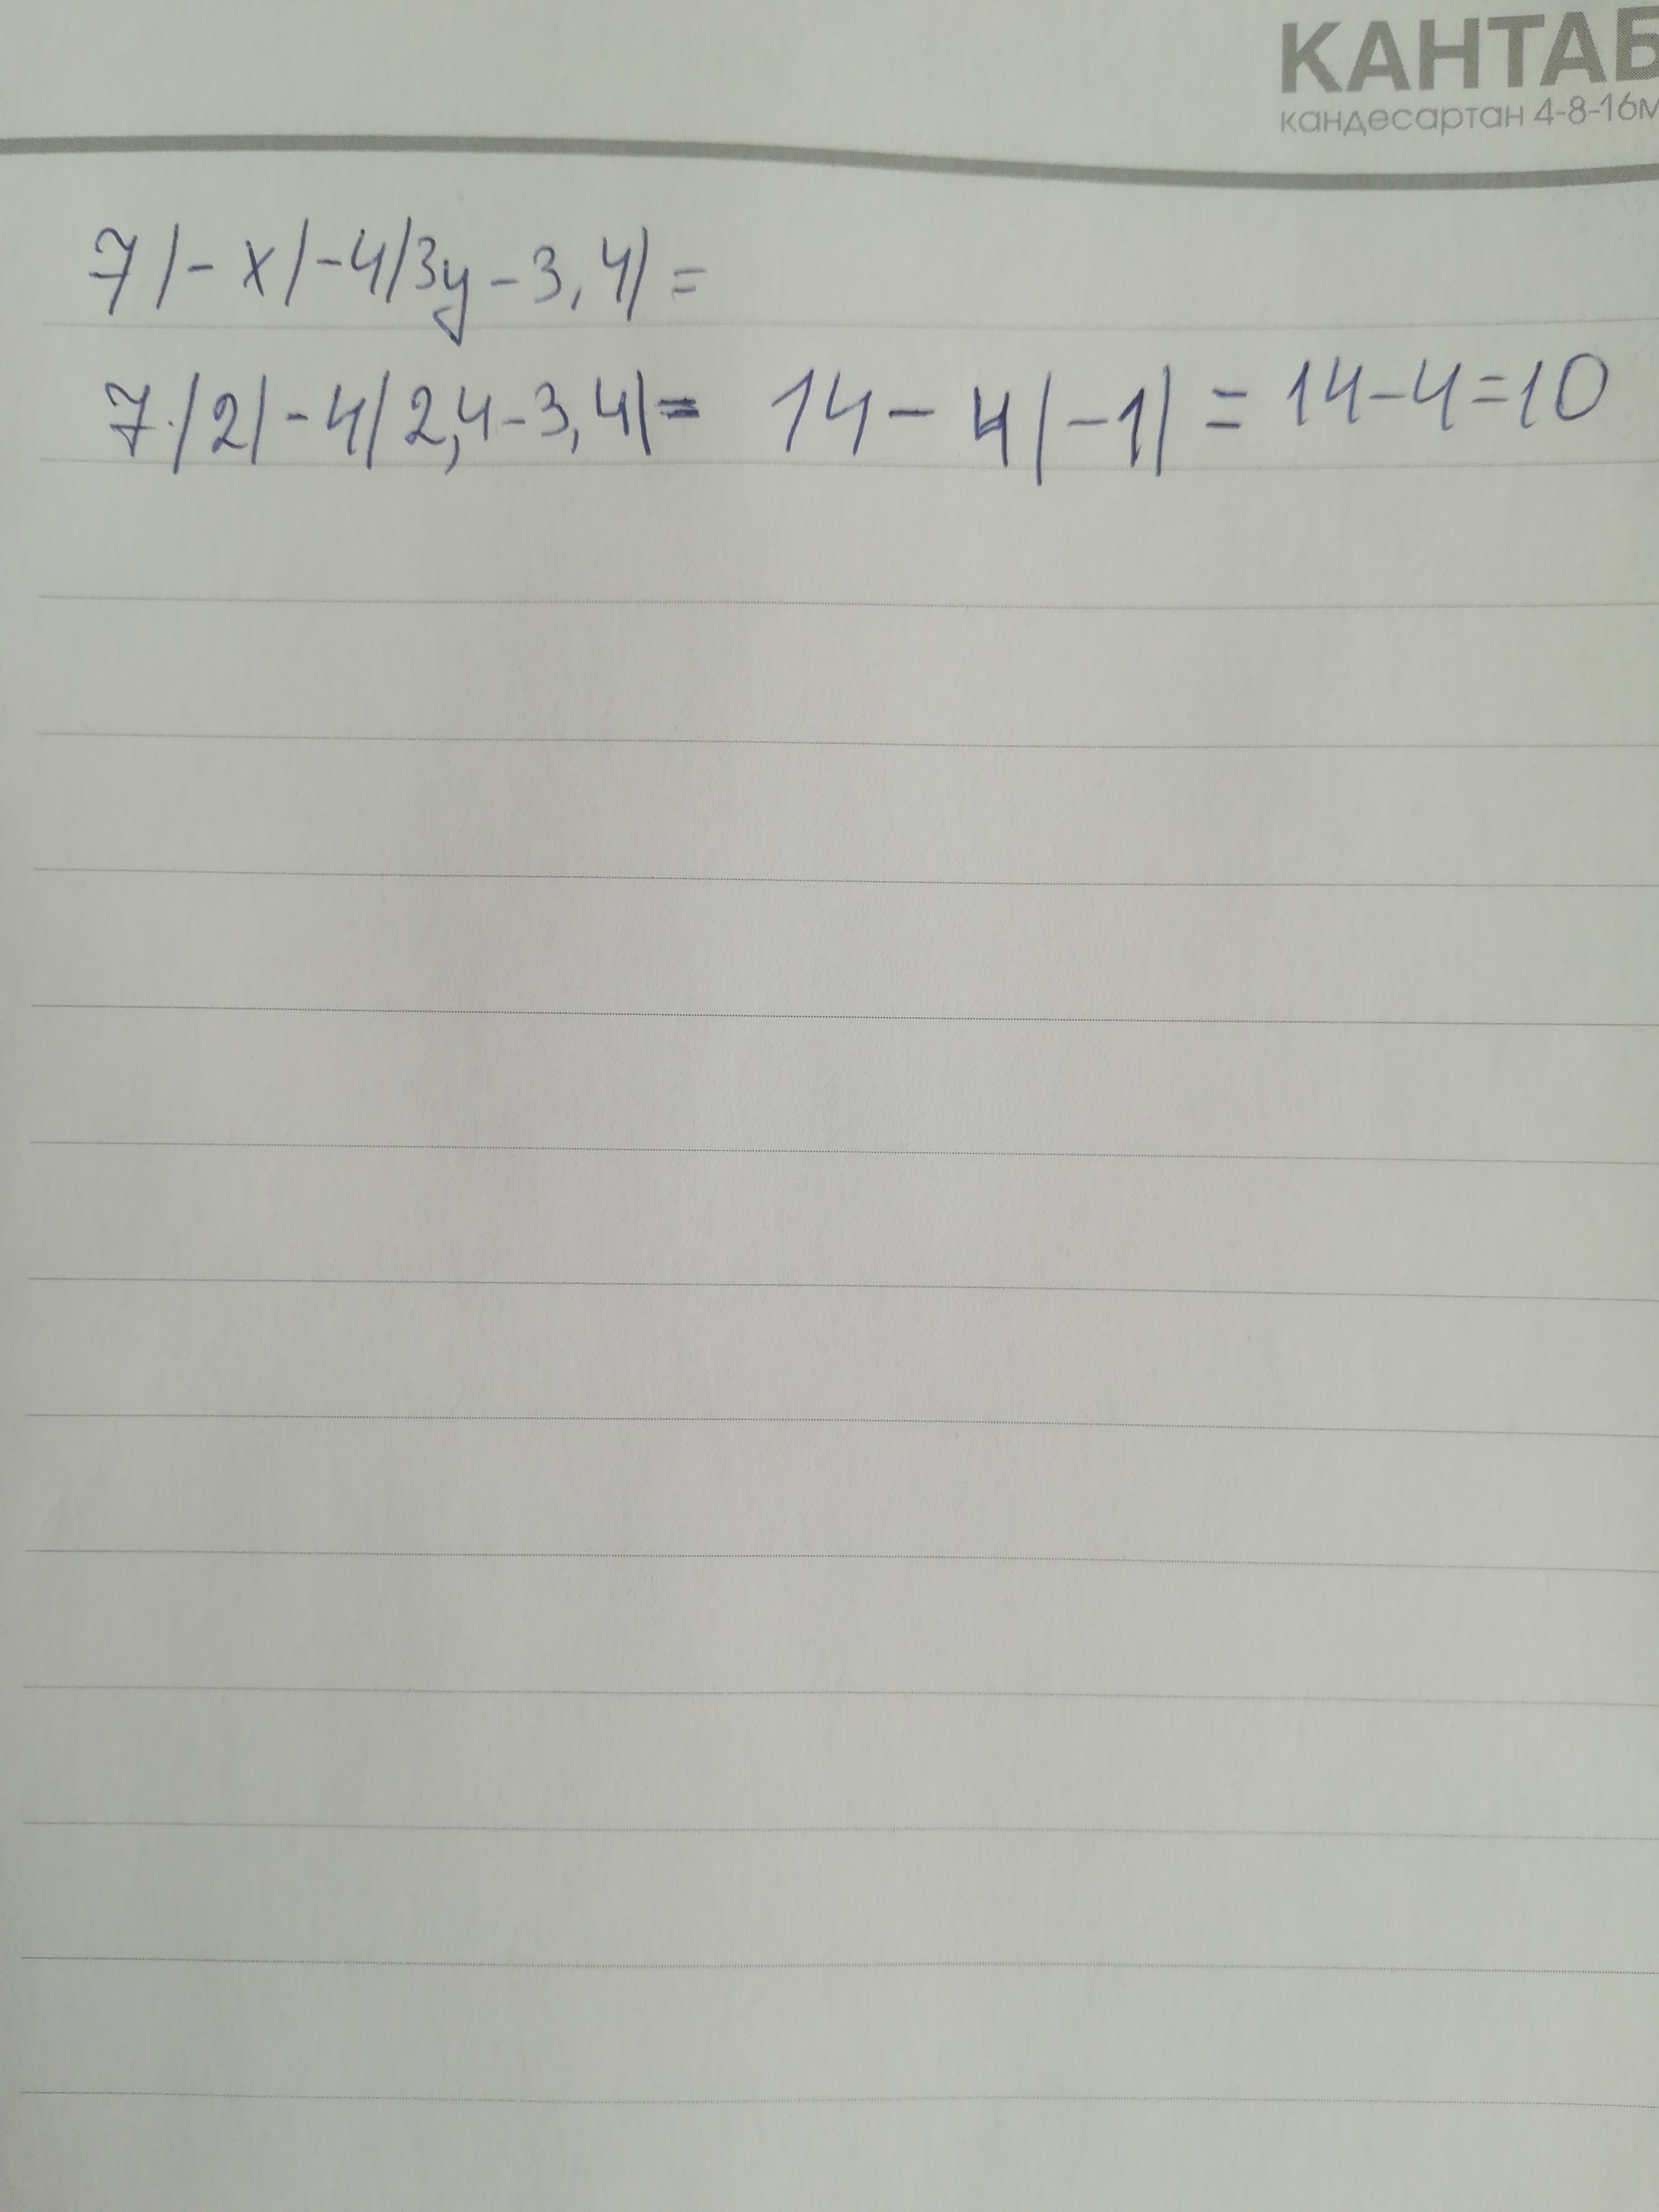 КАНТАБ
кандесартан 4-8-16м
7|-x|-4|3y-3,4|=
7·|2|-4|2,4-3,4|= 14-4|-1|=14-4=10